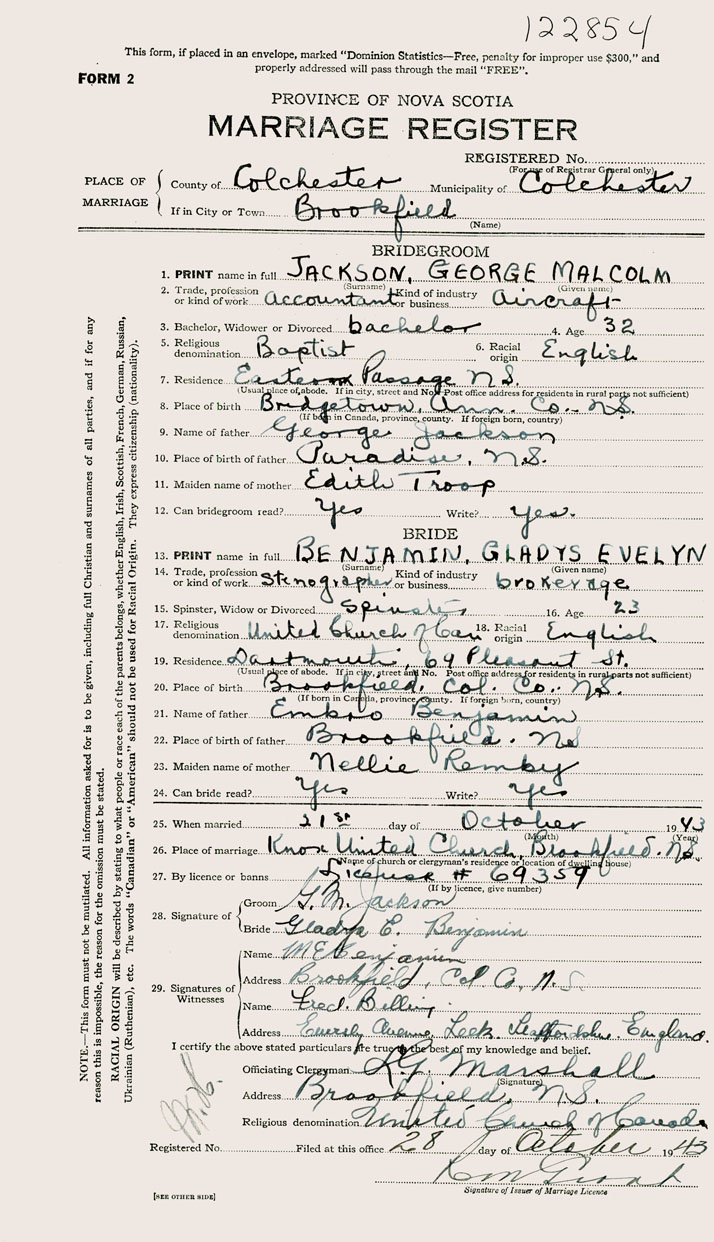 122854
This form, if placed in an envelope, marked "Dominion Statistics—Free, penalty for improper use $300," and
properly addressed will pass through the mail "FREE".
FORM 2
PROVINCE OF NOVA SCOTIA
MARRIAGE REGISTER
REGISTERED No.
(For use of Registrar General only)
PLACE OF MARRIAGE
County of Colchester Municipality of Colchester
If in City or Town Brookfield
(Name)
BRIDEGROOM
1. PRINT name in full JACKSON, GEORGE MALCOLM
(Surname) (Given name)
2. Trade, profession or kind of work accountant Kind of industry or business aircraft
3. Bachelor, Widower or Divorced bachelor 4. Age 32
5. Religious denomination Baptist 6. Racial origin English
7. Residence Eastern Passage N.S.
(Usual place of abode. If in city, street and No. Post office address for residents in rural parts not sufficient)
8. Place of birth Bridgetown, Ann. Co.. N.S.
(If born in Canada, province, county. If foreign born, country)
9. Name of father George Jackson
10. Place of birth of father Paradise, N.S.
11. Maiden name of mother Edith Troop
12. Can bridegroom read? Yes Write? Yes.
BRIDE
13. PRINT name in full BENJAMIN, GLADYS EVELYN
(Surname) (Given name)
14. Trade, profession or kind of work Stenographer Kind of industry or business brokerage
15. Spinster, Widow or Divorced Spinster 16. Age 23
17. Religious denomination United Church of Can 18. Racial origin English
19. Residence Dartmouth, 69 Pleasant St.
(Usual place of abode. If in city, street and No. Post office address for residents in rural parts not sufficient)
20. Place of birth Brookfield, Col. Co.. N.S.
(If born in Canada, province, county. If foreign born, country)
21. Name of father Benjamin
22. Place of birth of father Brookfield. NS
23. Maiden name of mother Nellie
24. Can bride read? Yes Write? Yes
25. When married 21st day of October 1943
(Month) (Year)
26. Place of marriage Knox United Church, Brookfield. N.S.
(Name of church or clergyman's residence or location of dwelling house)
27. By licence or banns License # 69359
(If by licence, give number)
28. Signature of
Groom G. M. Jackson
Bride Gladys E. Benjamin
29. Signatures of Witnesses
Name M E Benjamin
Address Brookfield, Col Co, N.S.
Name Fred. Billing
Address Avenue, Leek Staffordshire. England.
I certify the above stated particulars are true to the best of my knowledge and belief.
Officiating Clergyman Marshall
(Signature)
Address Brookfield, N.S.
Religious denomination United Church of Canada
Registered No. Filed at this office 28 day of October 1943
Signature of Issuer of Marriage Licence
[SEE OTHER SIDE]
NOTE.—This form must not be mutilated. All information asked for is to be given, including full Christian and surnames of all parties, and if for any
reason this is impossible, the reason for the omission must be stated.
RACIAL ORIGIN will be described by stating to what people or race each of the parents belongs, whether English, Irish, Scottish, French, German, Russian,
Ukrainian (Ruthenian), etc. The words "Canadian" or "American" should not be used for Racial Origin. They express citizenship (nationality).